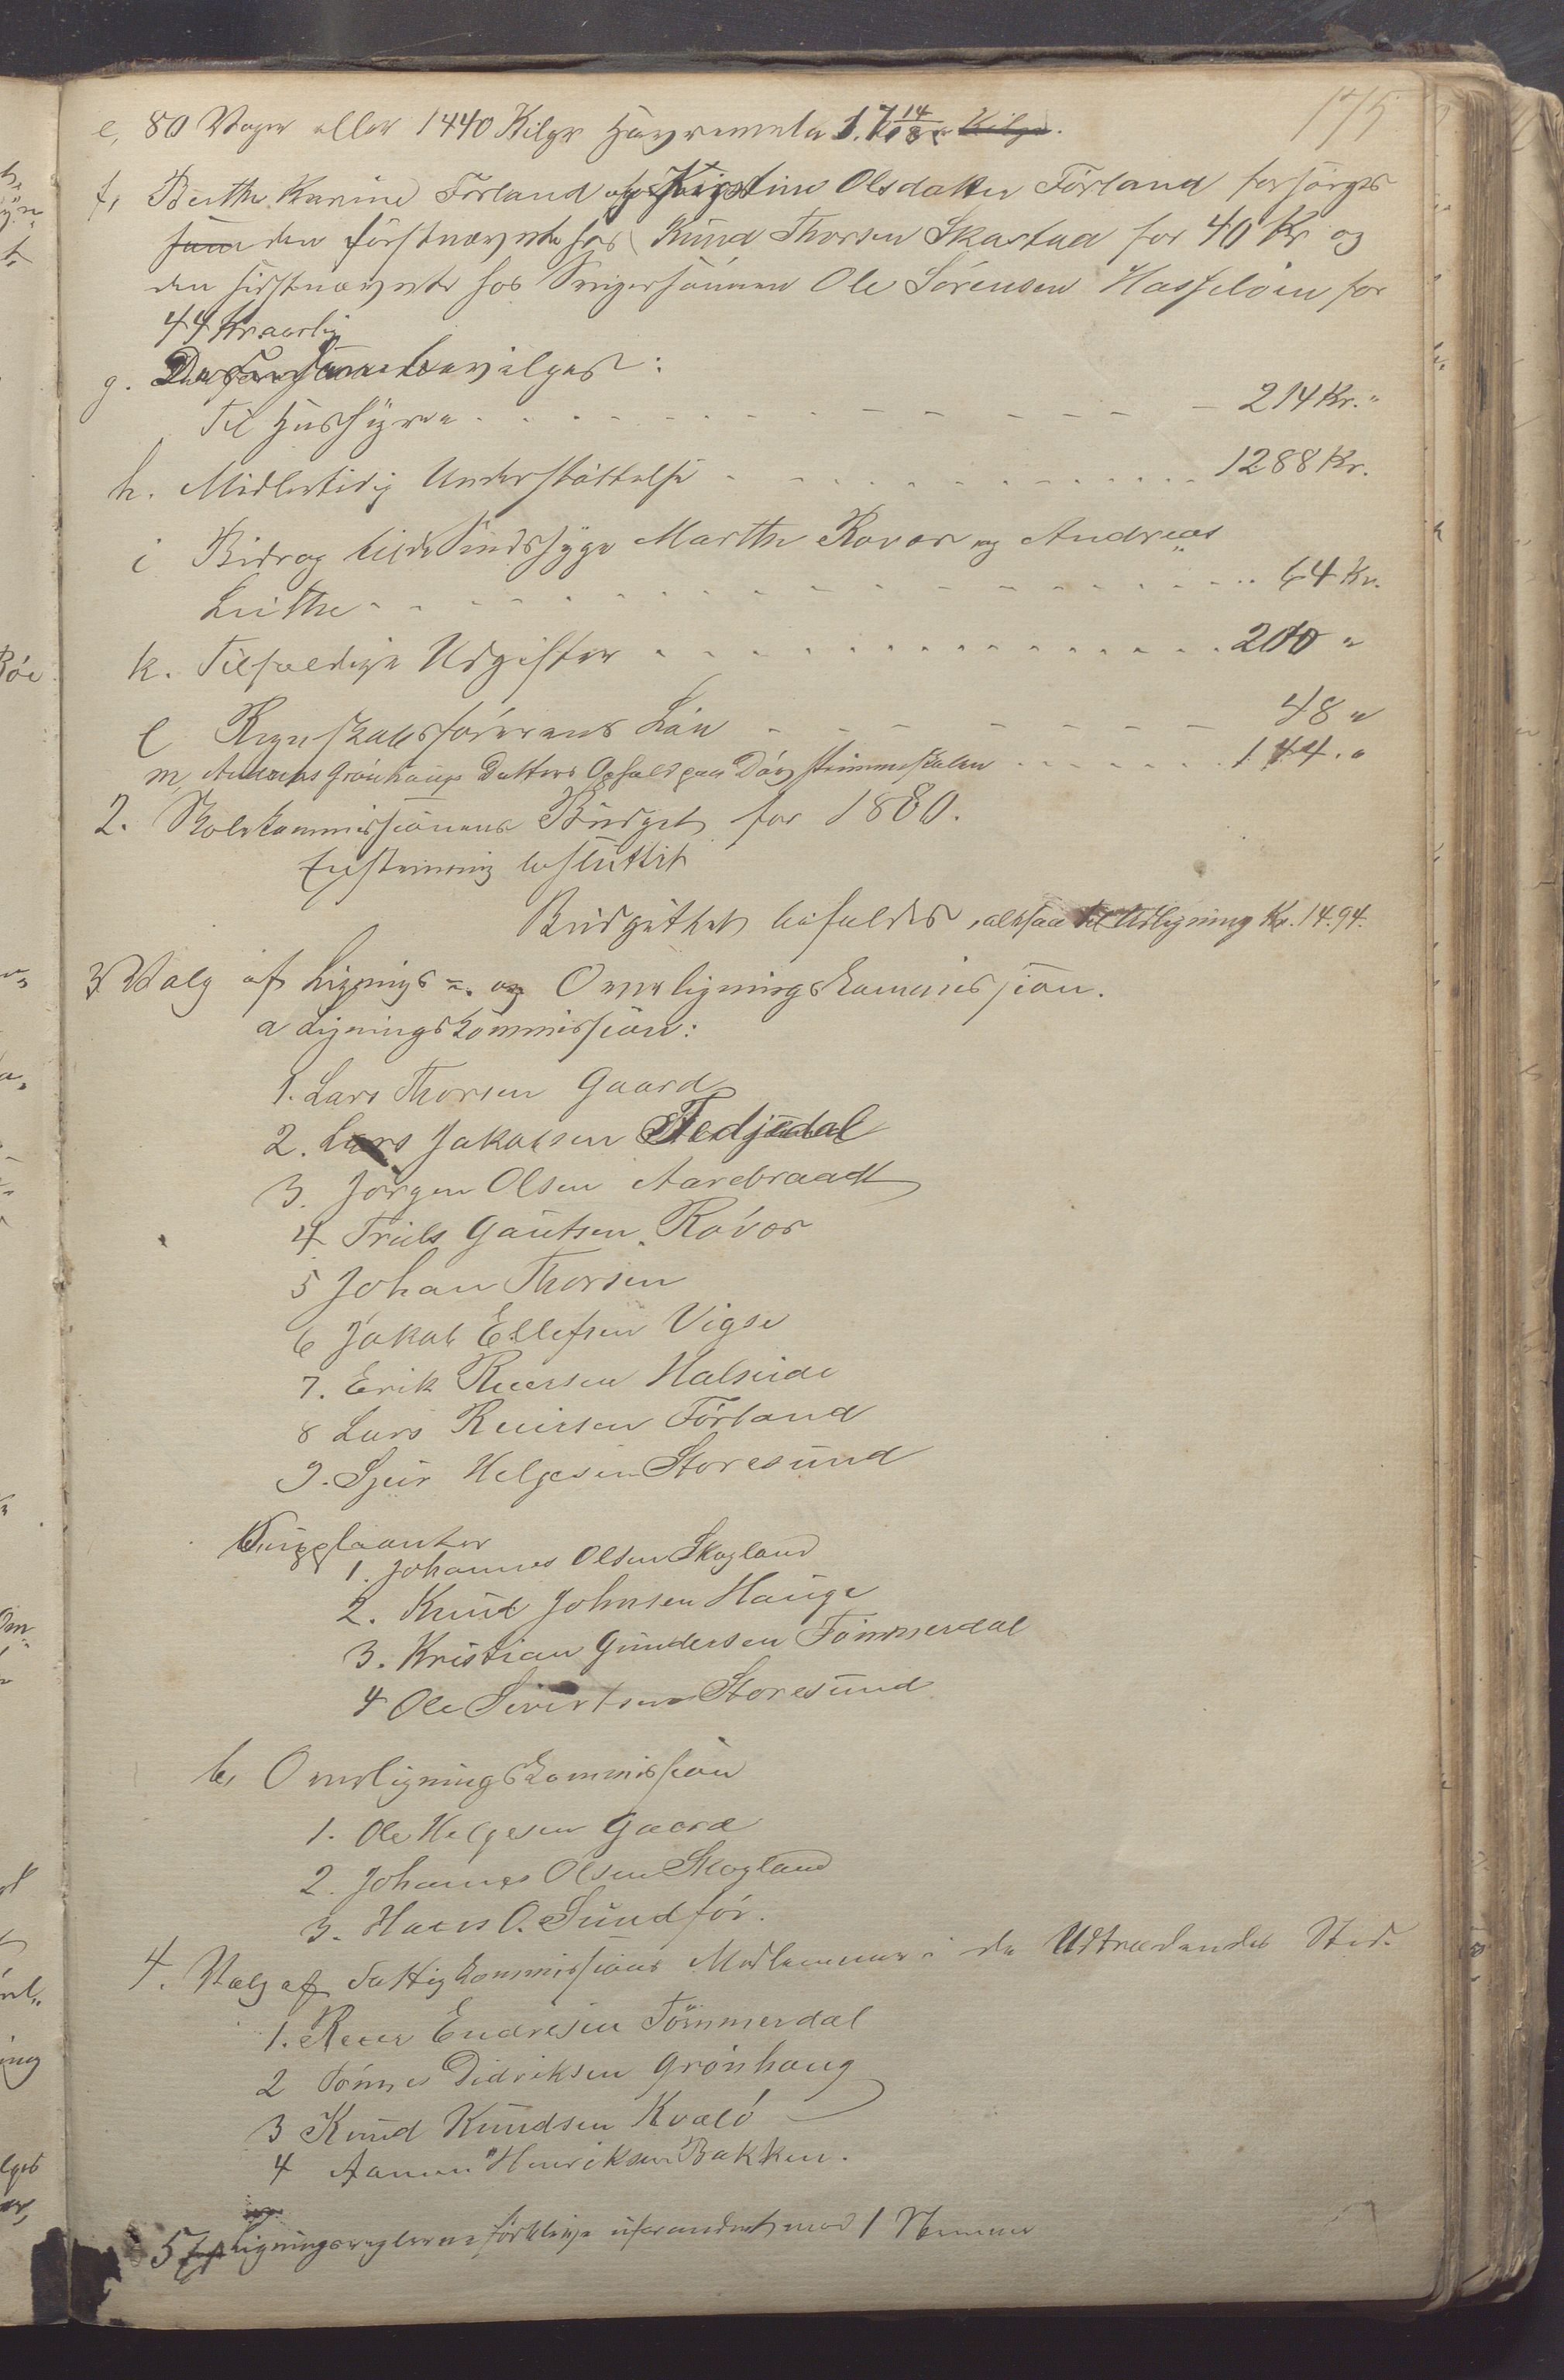 175
e, 80 Voger eller 1440 Kilgr Havremele
f, Berthe Karine Förland og Kirstine Olsdatter Förland forsörges
den förstnævnte hos Knud Thorsen Skastad for 40 Kr og
den sidstnævnte hos Svigersönnen Ole Sörensen Hasselöen for
44 Kr aarlig
g. bevilges:
Til Huusleye 214 Kr. "
h. Midlertidig Understöttelse 1288 Kr.
i Bidrag til de Sindssyge Marthe Rovær og Andreas
Leithe 64 Kr.
k. Tilfældige Udgifter 200 "
l Regnskabsförerens Lön 48 "
m, Grönhaugs Datters Ophold paa Döv stummeskolen 144. "
2. Skolekommissionens Budget for 1880.
Enstemmig besluttet
Budgettet bifaldes, altsaa til Udligning Kr. 1494.
3 Valg af Lignings- og Overligningskommission.
a Ligningskommission:
1. Lars Thorsen Gaard
2. Lars Jakobsen Fedjedal
3. Jörgen Olsen Aarebraadt
4 Triels Gautsen Rövær
5 Johan Thorsen
6 Jakob Ellefsen Vigse
7. Erik Reiersen Halseide
8 Lars Reiersen Förland
9. Sjur Helgesen Storesund
Supleanter
1. Johannes Olsen Skogland
2. Knud Johnsen Hauge
3. Kristian Gundersen Tömmerdal
4 Ole Sivertsen Storesund
b, Overligningskommission
1. Ole Helgesen Gaard
2. Johannes Olsen Skogland
3. Hans O. Sundför.
4. Valg af Fattigkommissions Medlemmer i de Udtrædendes Sted.
1. Reier Endresen Tömmerdal
2 Tönnes Didriksen Grönhaug
3 Knud Knudsen Kvalö
4 Aamun Henriksen Bakken.
5 Ligningsreglerne uforandret mod 1 Stemme